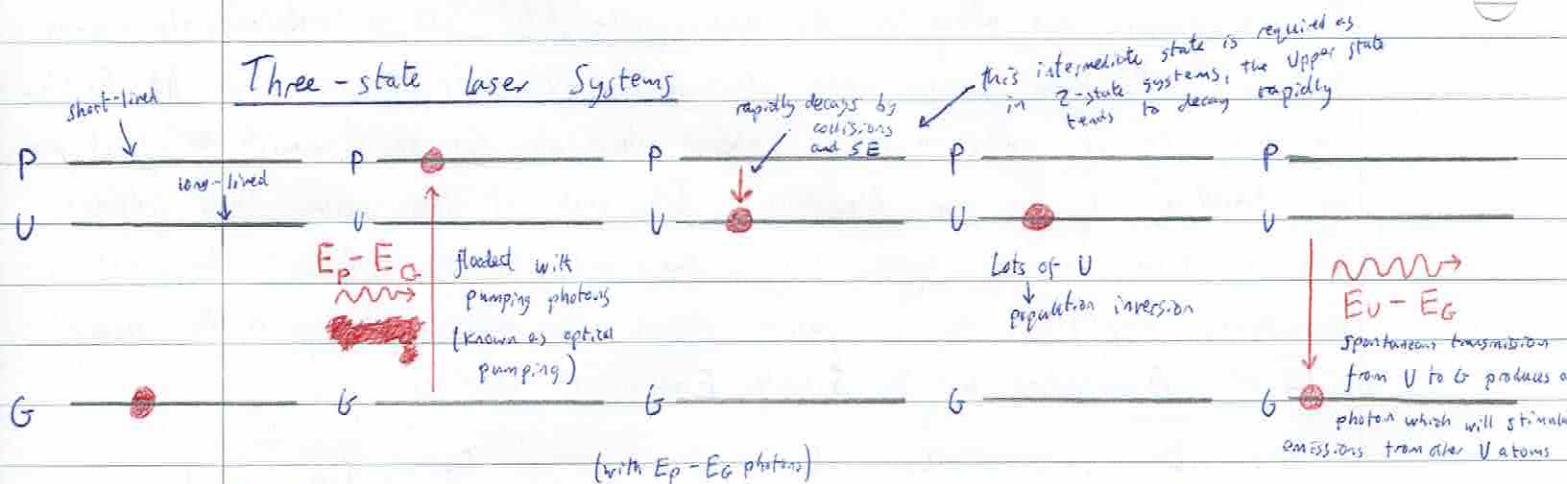 Three-state laser Systems
short-lived
long-lived
P
U
G
P
U
G
E_P - E_G
flooded with
pumping photons
(known as optical
pumping)
rapidly decays by
collisions
and SE
this intermediate state is required as
in 2-state systems, the upper state
tends to decay rapidly
P
U
G
P
U
G
Lots of U
↓
population inversion
P
U
G
E_U - E_G
spontaneous transmission
from U to G produces a
photon which will stimula
emissions from other U atoms
(with E_P - E_G photons)